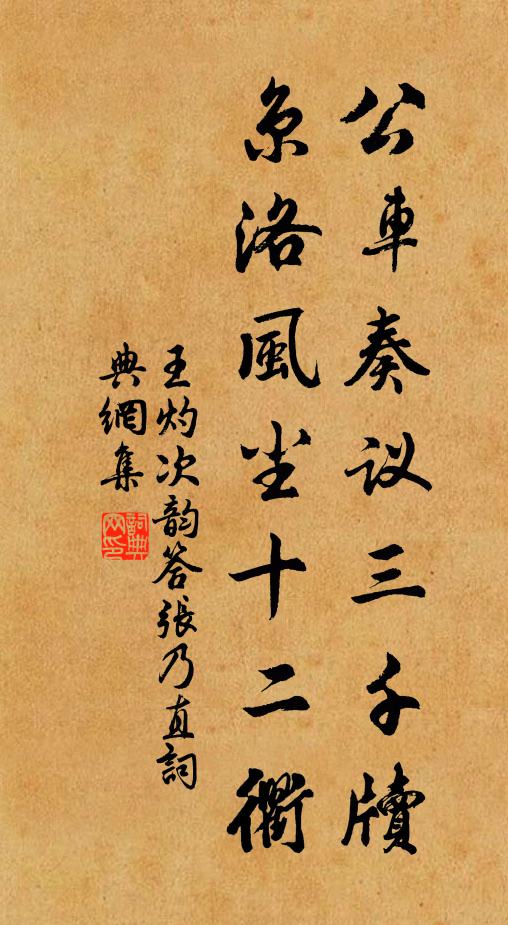 公車奏议三千牘
京洛風尘十二衢
王灼次韵答張乃直詞
典網集
詞典網印